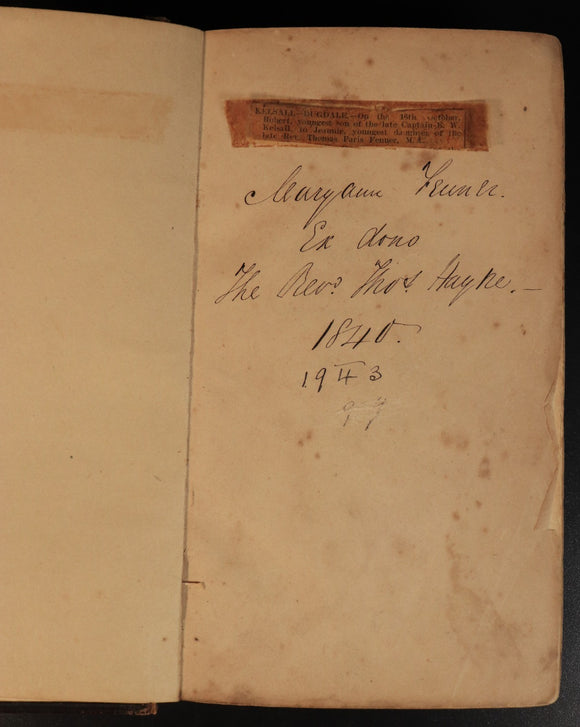 KELSALL—DUGDALE.—On the 16th october,
Hubert, youngest son of the late Captain R. W.
Kelsall, to Jeannie, youngest daughter of the
late Rev. Thomas Paris Fenner, M.A.
Maryann Fenner.
Ex dono
The Revd. Thos. Hayke.—
1840.
1943